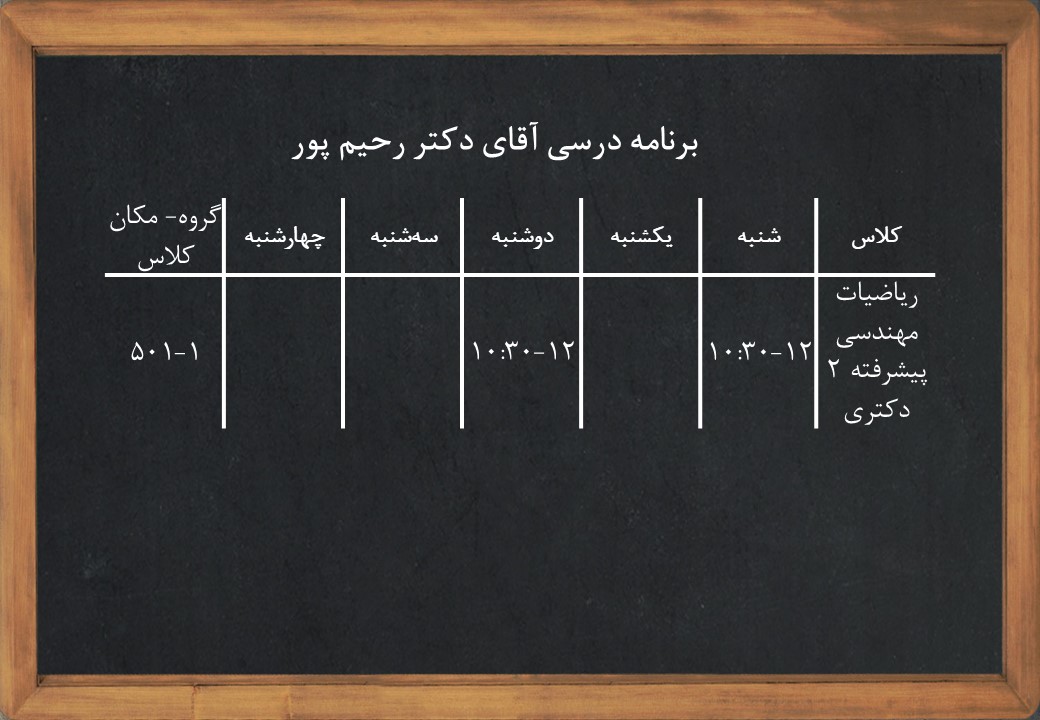 برنامه درسی آقای دکتر رحیم پور
کلاس شنبه یکشنبه دوشنبه سه‌شنبه چهارشنبه گروه- مکان کلاس
ریاضیات
مهندسی
پیشرفته ۲
دکتری
۱۰:۳۰-۱۲ ۱۰:۳۰-۱۲ ۵۰۱-۱